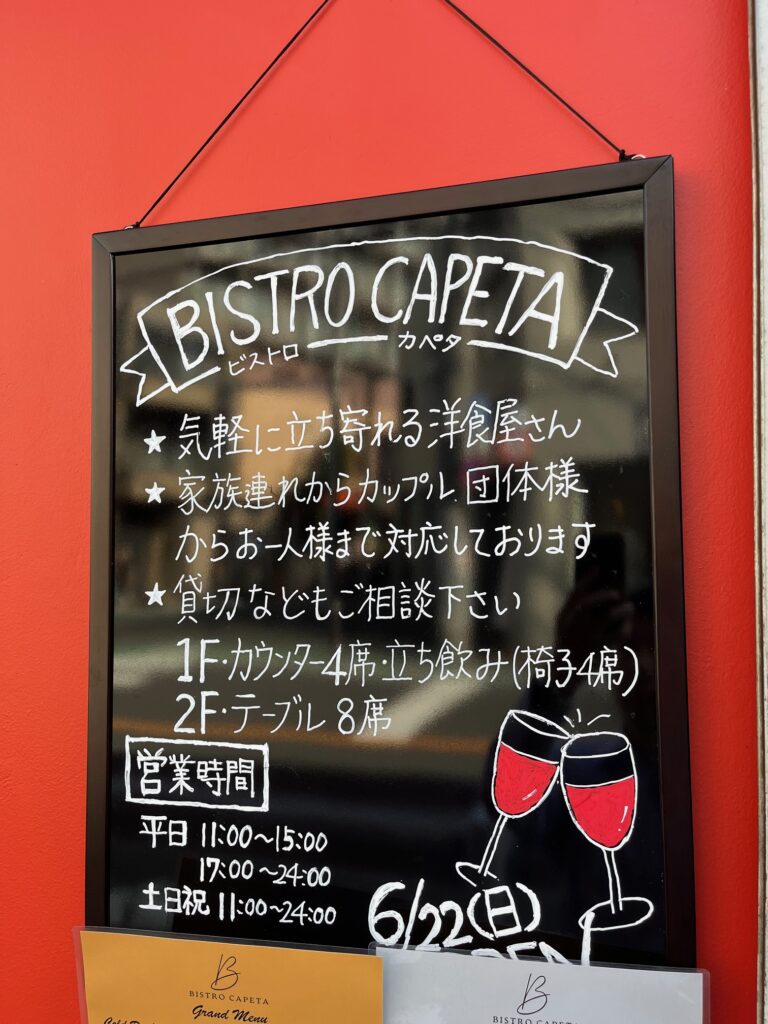 BISTRO CAPETA
ビストロ カペタ
★ 気軽に立ち寄れる洋食屋さん
★ 家族連れからカップル、団体様
からお一人様まで対応しております
★ 貸切などもご相談下さい
1F・カウンター4席・立ち飲み(椅子4席)
2F・テーブル 8席
営業時間
平日 11:00〜15:00
17:00〜24:00
土日祝 11:00〜24:00
6/22(日)
B
BISTRO CAPETA
Grand Menu
B
BISTRO CAPETA